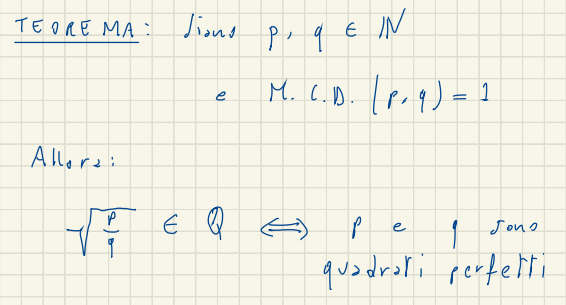 TEOREMA: siano p, q ∈ ℕ
e M.C.D. (p, q) = 1
Allora:
√(p/q) ∈ ℚ ⟺ p e q sono
quadrati perfetti